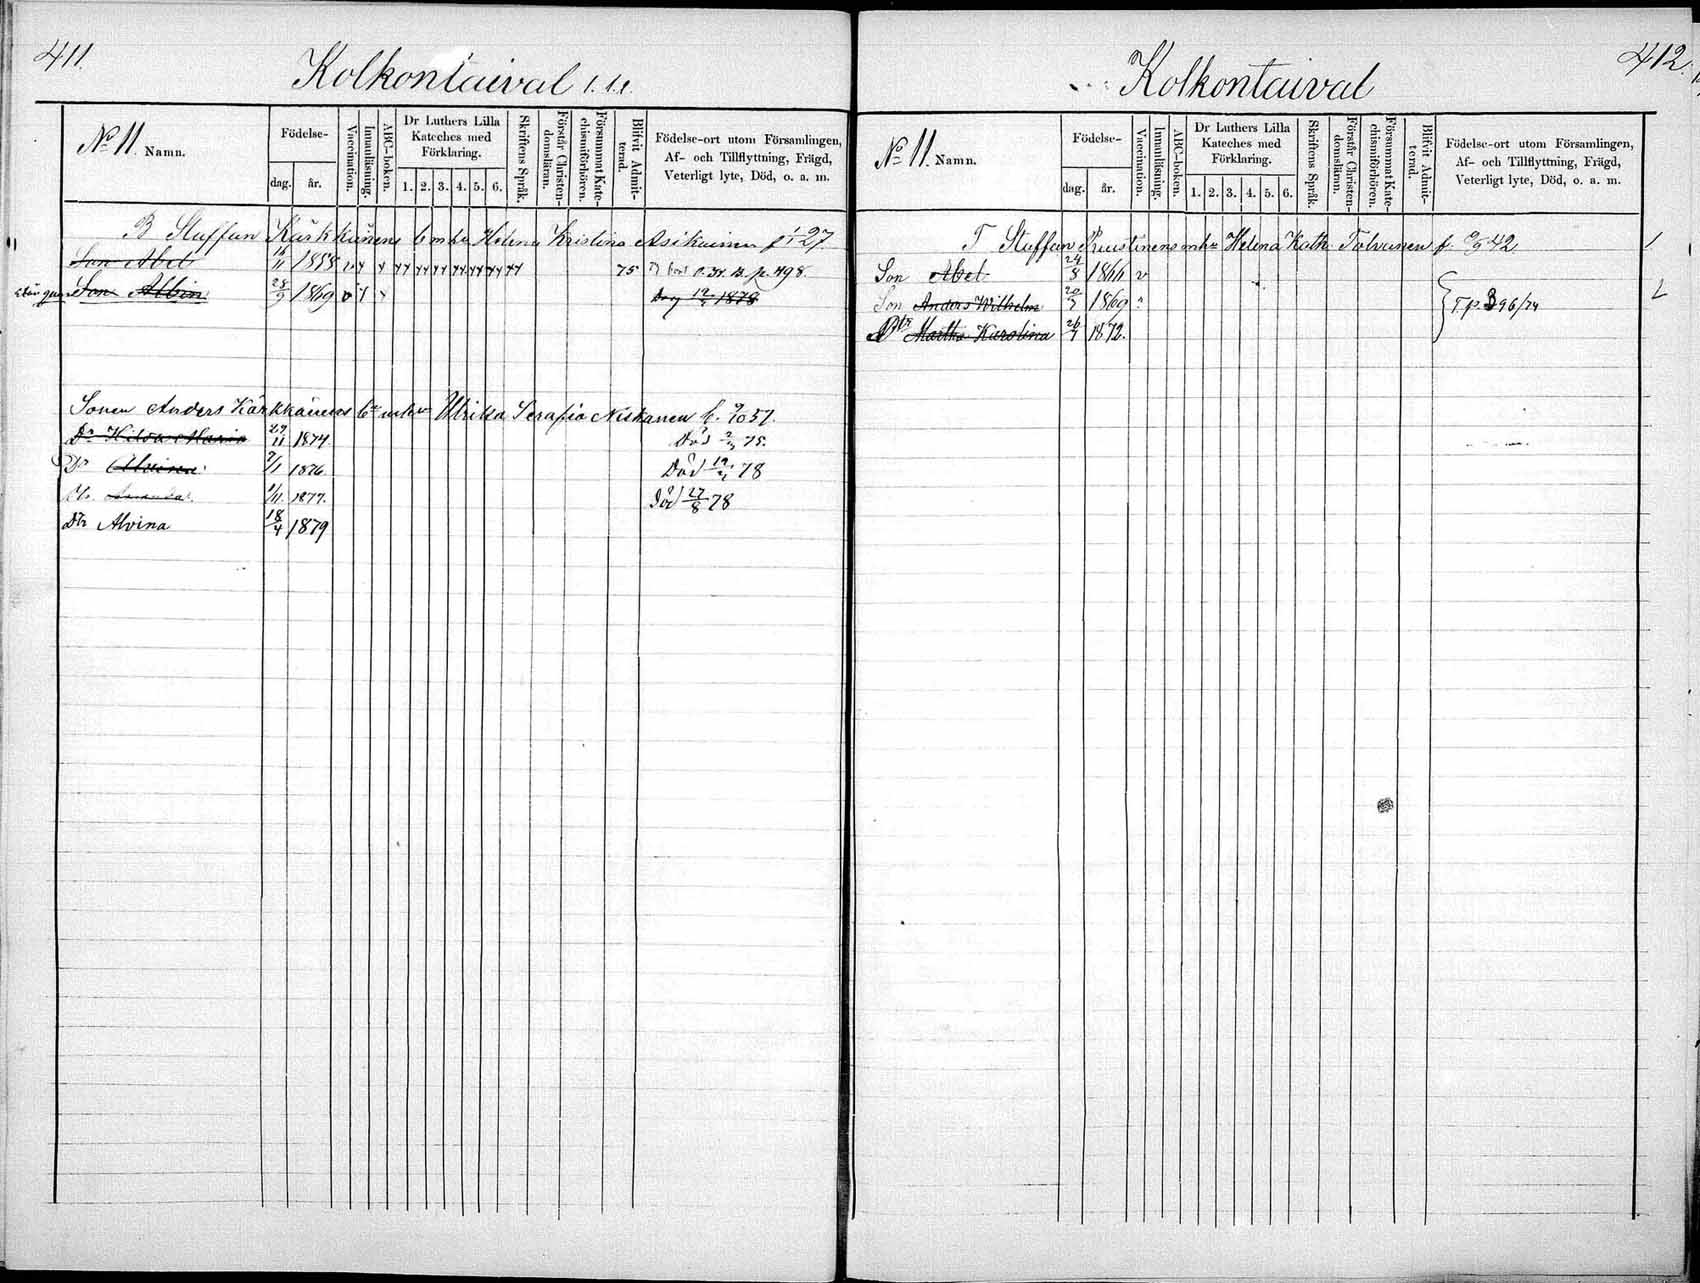 411.
Kolkontaival
No 11. Namn.
Födelse-
dag.
år.
Vaccination.
Innanläsning.
ABC-boken.
Dr Luthers Lilla
Kateches med
Förklaring.
1. 2. 3. 4. 5. 6.
Skriftens Språk.
Förstår Christen-
domsläran.
Försummat Kate-
chismiförhören.
Blifvit Admit-
terad.
Födelse-ort utom Församlingen,
Af- och Tillflyttning, Frägd,
Veterligt lyte, Död, o. a. m.
B Staffan Kärkkäinens mhu Helena Kristina Asikainen 27
Son Abel 11 1858 v 75 p. 498
Son Albin 28/9 1869 v 1878
Sonen Anders Kärkkäinens mhu Ulrika Serafia Niskanen f. 57.
Dr Hilda Maria 29/11 1874 Död 75.
Dr Alvina 1876 Död 19 78
Amanda 1/11 1877. Död 27/8 78
Dtr Alvina 18/4 1879
412.
Kolkontaival
No 11. Namn.
Födelse-
dag.
år.
Vaccination.
Innanläsning.
ABC-boken.
Dr Luthers Lilla
Kateches med
Förklaring.
1. 2. 3. 4. 5. 6.
Skriftens Språk.
Förstår Christen-
domsläran.
Försummat Kate-
chismiförhören.
Blifvit Admit-
terad.
Födelse-ort utom Församlingen,
Af- och Tillflyttning, Frägd,
Veterligt lyte, Död, o. a. m.
T Staffan Ruustinens mhu Helena Kath. Tolvanen f. 42
Son Abel 24/8 1866 v
Son Anders Wilhelm 20/7 1869 T.p. 396/74
Dtr Martha Karolina 26 1872.